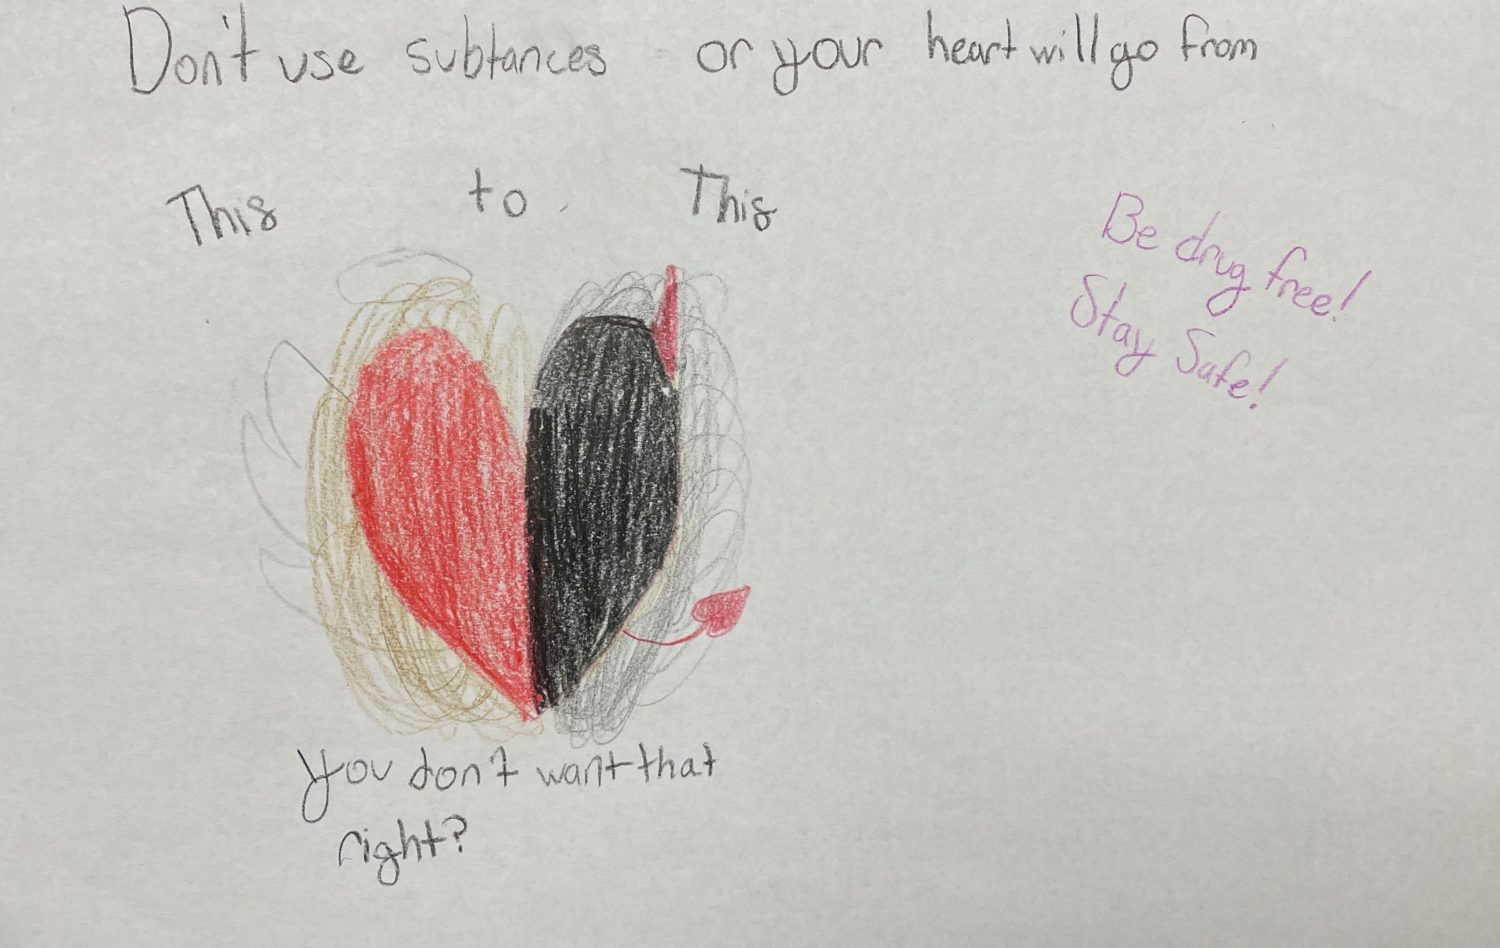 Don't use subtances or your heart will go from
This to This
Be drug free!
Stay Safe!
You don't want that
right?